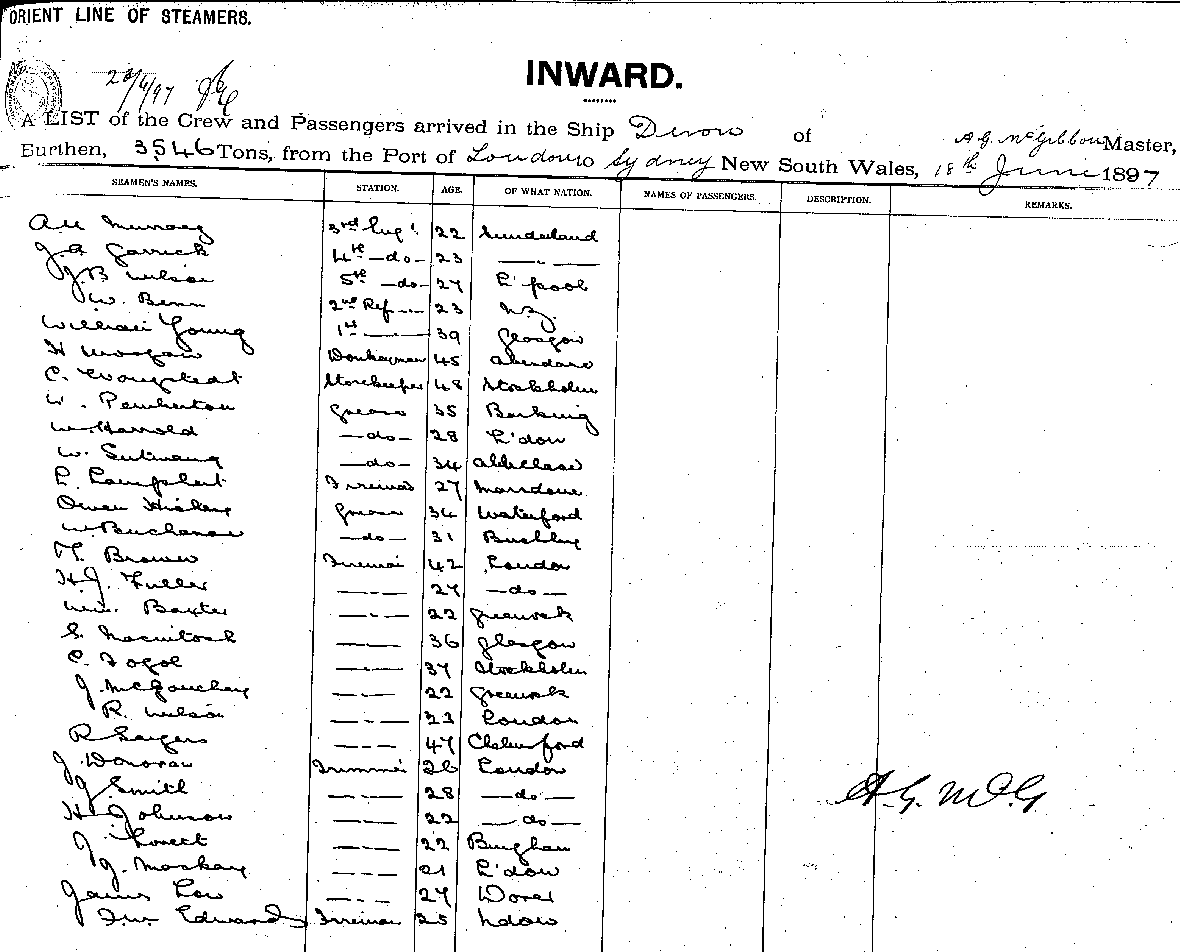 ORIENT LINE OF STEAMERS.
INWARD.
23/6/97
A LIST of the Crew and Passengers arrived in the Ship Devon of A G McGibbon Master,
Burthen, 3546 Tons, from the Port of London to Sydney New South Wales, 18th June 1897
SEAMEN'S NAMES. STATION. AGE. OF WHAT NATION. NAMES OF PASSENGERS. DESCRIPTION. REMARKS.
Murray 3rd Eng 22 Sunderland
J.A Garrick 4th —do— 23 — —
J.B Wilson 5th —do— 27 L'pool
W. Benn 2nd Ref 23 N.Z.
William Young 1st — 39 Glasgow
H Morgan Donkeyman 45 Aberdare
C. Storekeeper 48 Stockholm
W. Pemberton Greaser 35 Barking
W. Harrold —do— 28 L'don
W. —do— 34
Fireman 27
Owen Hickey Greaser 34 Waterford
W. Buchanan —do— 31
Brown Fireman 42 London
H.J. Fuller — — 27 —do—
Wm. Baxter — — 22 Greenock
S. Macintosh — — 36 Glasgow
C. — — 37 Stockholm
J. McGouchey — — 22 Greenock
R. Wilson — — London
R Sayers — — 47 Chelmsford
J. Donovan Trimmer 26 London
J Smith — — 28 —do—
H Johnson — — 22 —do—
J — — 22
J. Mackay — — 21 L'don
James Low — — 27 Dover
Edwards Fireman 25 Ldon
A.G. McG